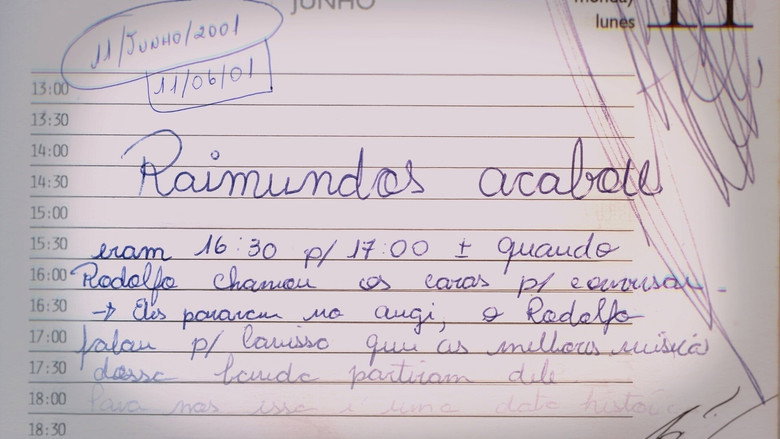 JUNHO
monday
lunes 11
11/JUNHO/2001
11/06/01
13:00
13:30
14:00
Raimundos acabou
14:30
15:00
15:30 eram 16:30 p/ 17:00 ± quando
16:00 Rodolfo chamou os caras p/ conversar
16:30 → Eles pararam no augi, o Rodolfo
17:00 falou p/ Canisso que as melhores música
17:30 dessa banda partiram dele
18:00 Para nos isso é uma data histori
18:30